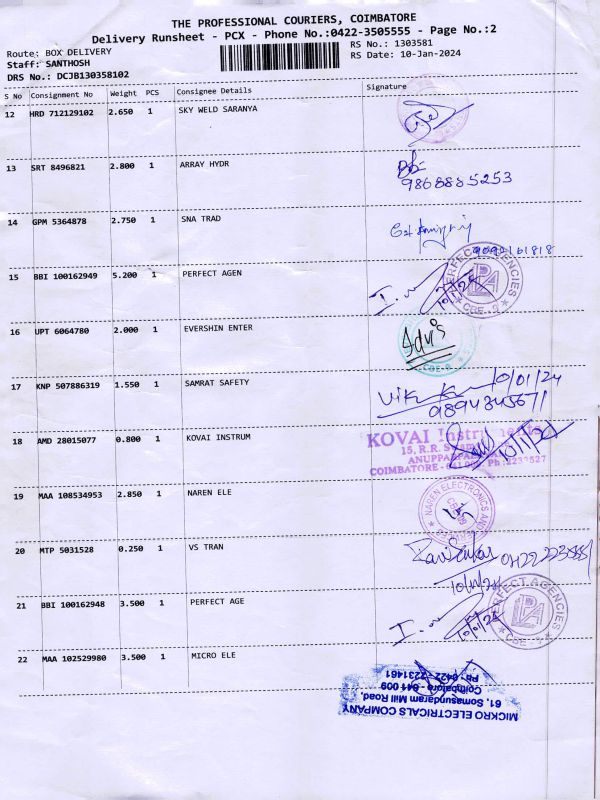 THE PROFESSIONAL COURIERS, COIMBATORE
Delivery Runsheet - PCX - Phone No.:0422-3505555 - Page No.:2
Route: BOX DELIVERY
RS No.: 1303581
Staff: SANTHOSH
RS Date: 10-Jan-2024
DRS No.: DCJB130358102
S No Consignment No Weight PCS Consignee Details Signature
12 HRD 712129102 2.650 1 SKY WELD SARANYA
13 SRT 8496821 2.800 1 ARRAY HYDR
9868885253
14 GPM 5364878 2.750 1 SNA TRAD
15 BBI 100162949 5.200 1 PERFECT AGEN
PERFECT AGENCIES
PA
CBE - 9
10/1/24
16 UPT 6064780 2.000 1 EVERSHIN ENTER
CBE-9
17 KNP 507886319 1.550 1 SAMRAT SAFETY
10/01/24
9894345671
18 AMD 28015077 0.800 1 KOVAI INSTRUM
KOVAI Instruments
15, R.R.
COIMBATORE - 641 009 Ph :2233527
10/1/24
19 MAA 108534953 2.850 1 NAREN ELE
NAREN ELECTRONICS AND
20 MTP 5031528 0.250 1 VS TRAN
21 BBI 100162948 3.500 1 PERFECT AGE
PERFECT AGENCIES
PA
CBE - 9
10/1/24
22 MAA 102529980 3.500 1 MICRO ELE
MICKRO ELECTRICALS COMPANY
61, Somasundaram Mill Road,
Coimbatore - 641 009
Ph : 0422 - 2231461